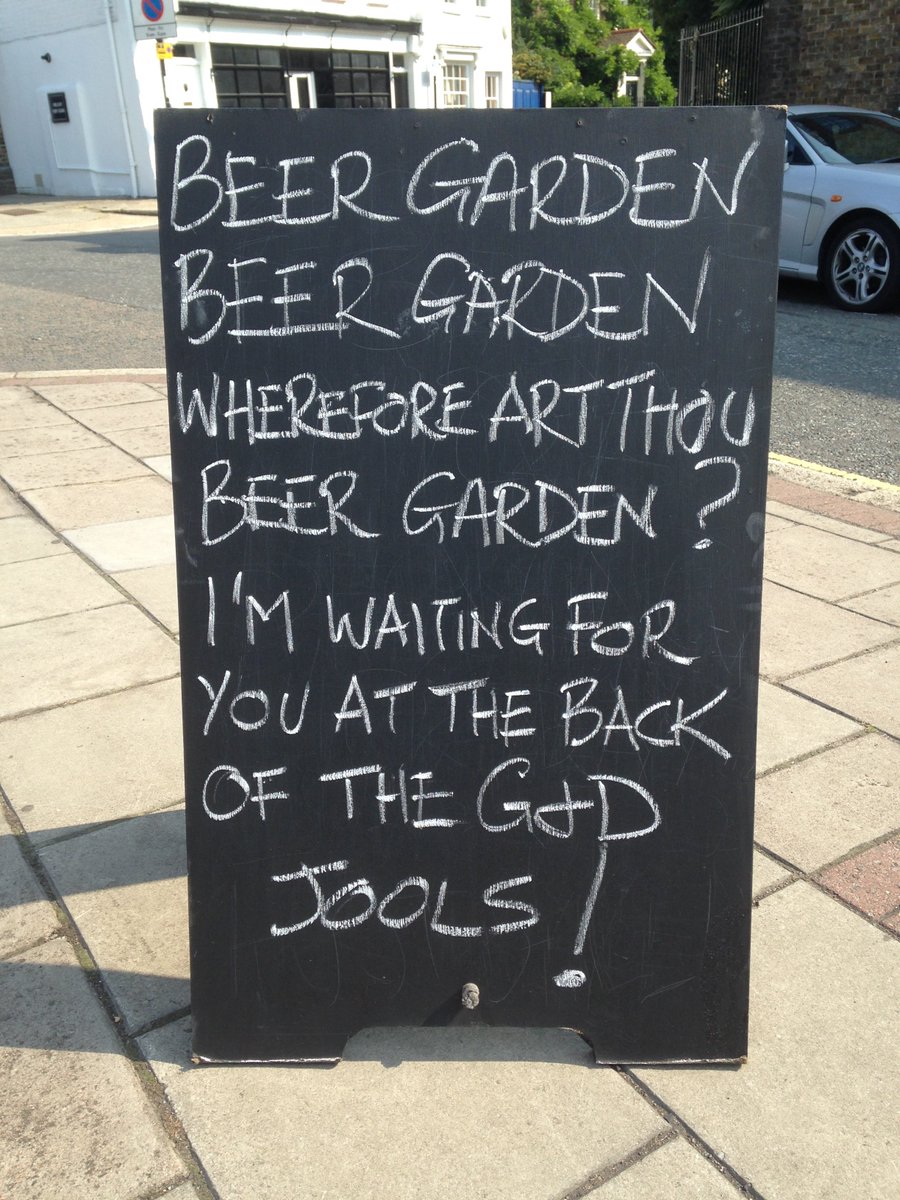 BEER GARDEN
BEER GARDEN
WHEREFORE ART THOU
BEER GARDEN ?
I'M WAITING FOR
YOU AT THE BACK
OF THE G&D
JOOLS !